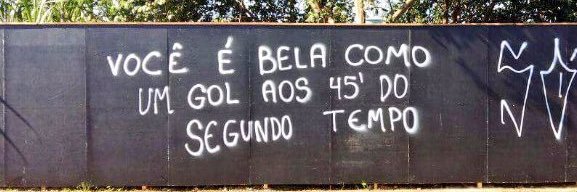 VOCÊ É BELA COMO
UM GOL AOS 45' DO
SEGUNDO TEMPO